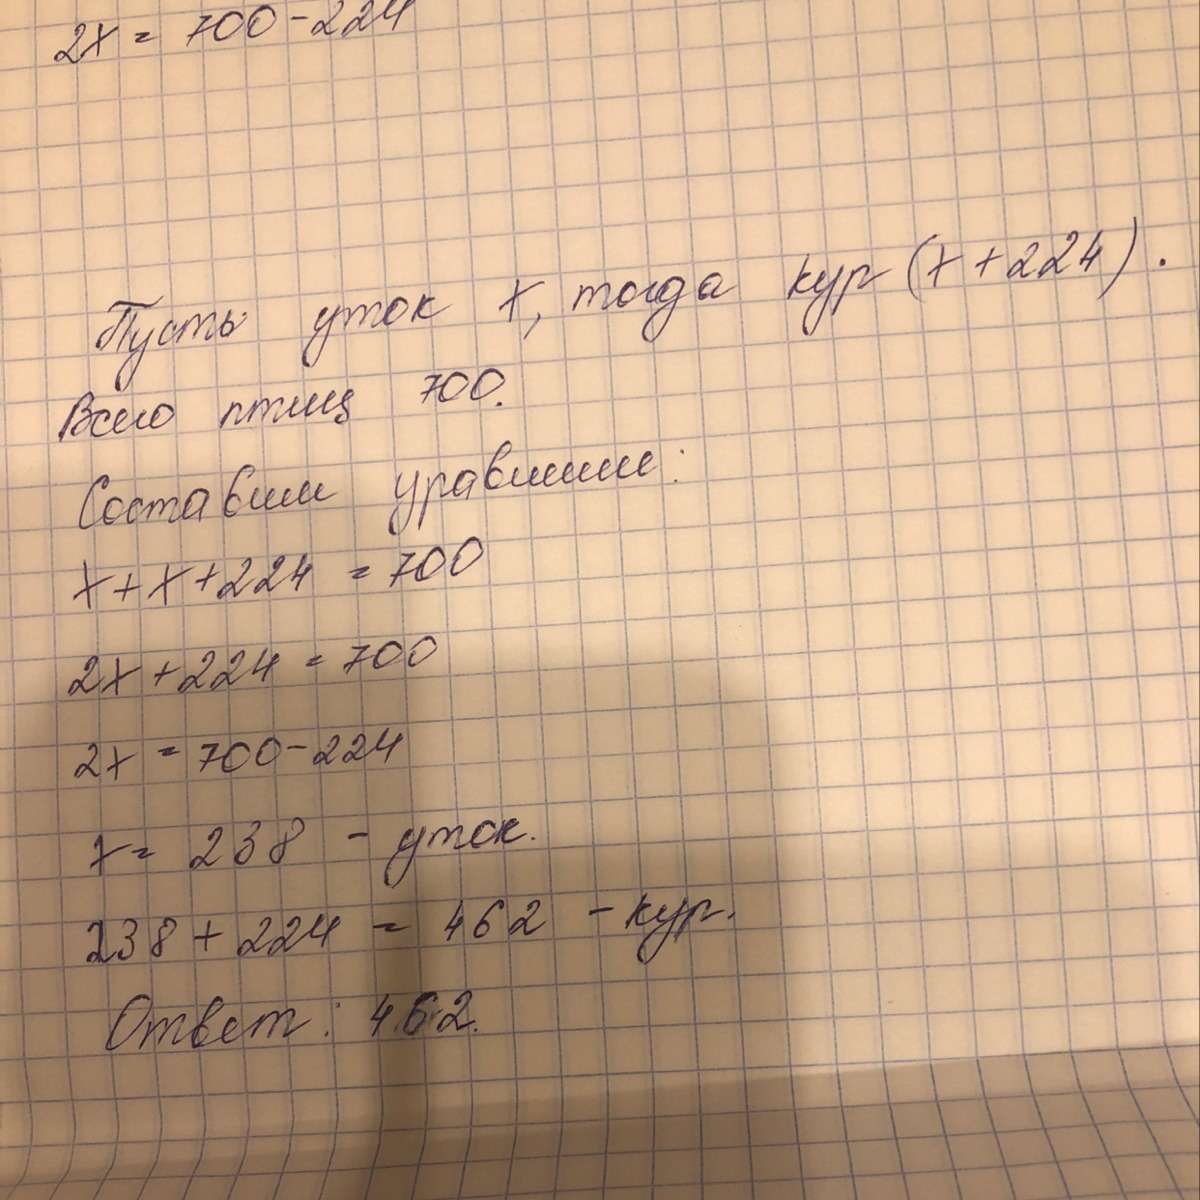 2x = 700 - 224
Пусть уток x, тогда кур (x + 224).
Всего птиц 700.
Составим уравнение:
x + x + 224 = 700
2x + 224 = 700
2x = 700 - 224
x = 238 - уток.
238 + 224 = 462 - кур.
Ответ: 462.